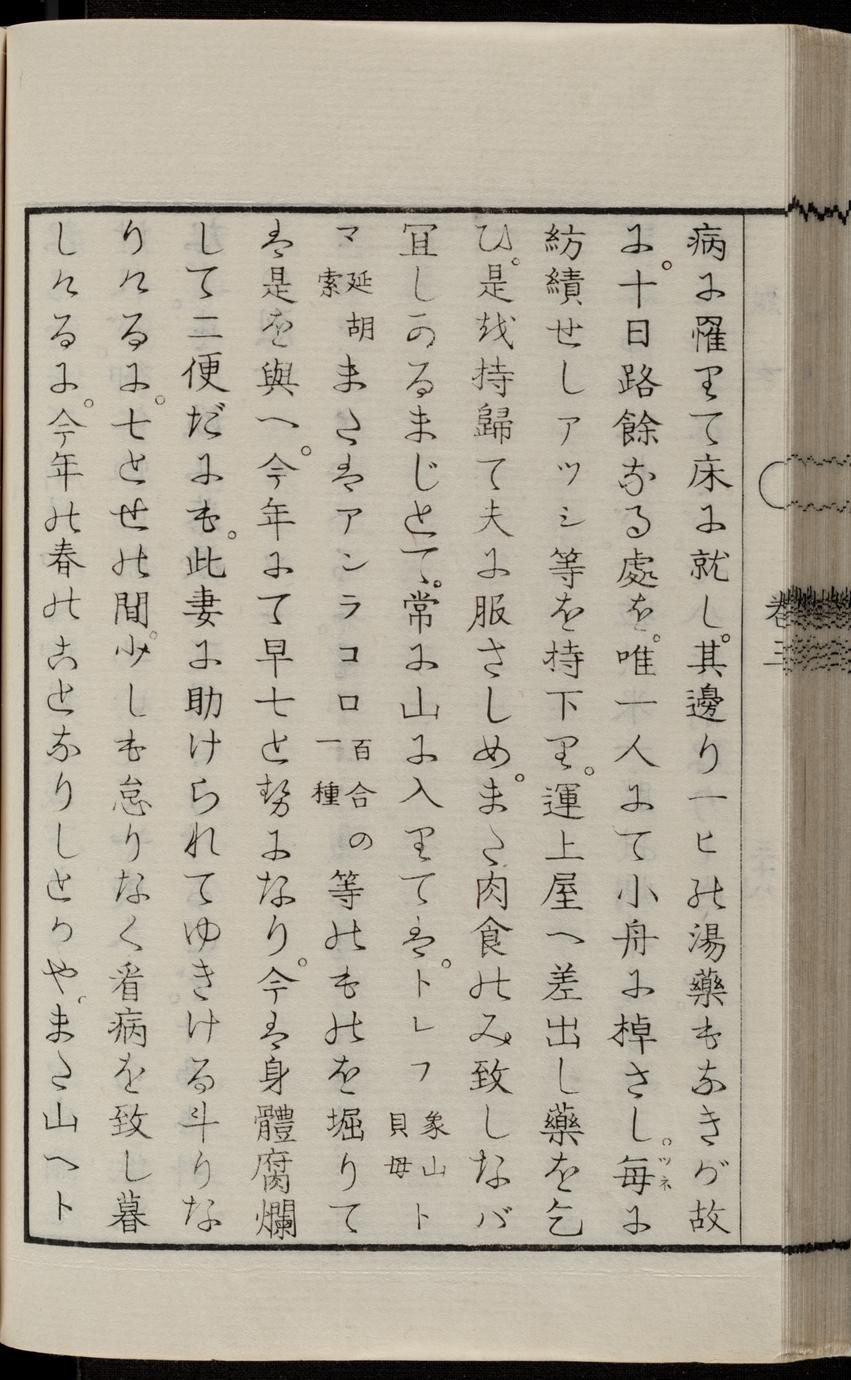 病に罹りて床に就し。其邊り一ヒの湯藥もなきが故
に。十日路餘なる處を。唯一人にて小舟に棹さし。毎ツネに
紡績せしアツシ等を持下り。運上屋へ差出し藥を乞
ひ。是を持歸て夫に服さしめ。また肉食のみ致しなバ
宜しかるまじとて。常に山に入りてハ。トレフ象山貝母ト
マ延胡索またハアンラコロ百合の一種等のものを堀りて
ハ是を與へ。今年にて早七とせになり。今ハ身體腐爛
して二便だにも。此妻に助けられてゆきける斗りな
りけるに。七とせの間。少しも怠りなく看病を致し暮
しけるに。今年の春のことなりしとかや。また山へト
卷三